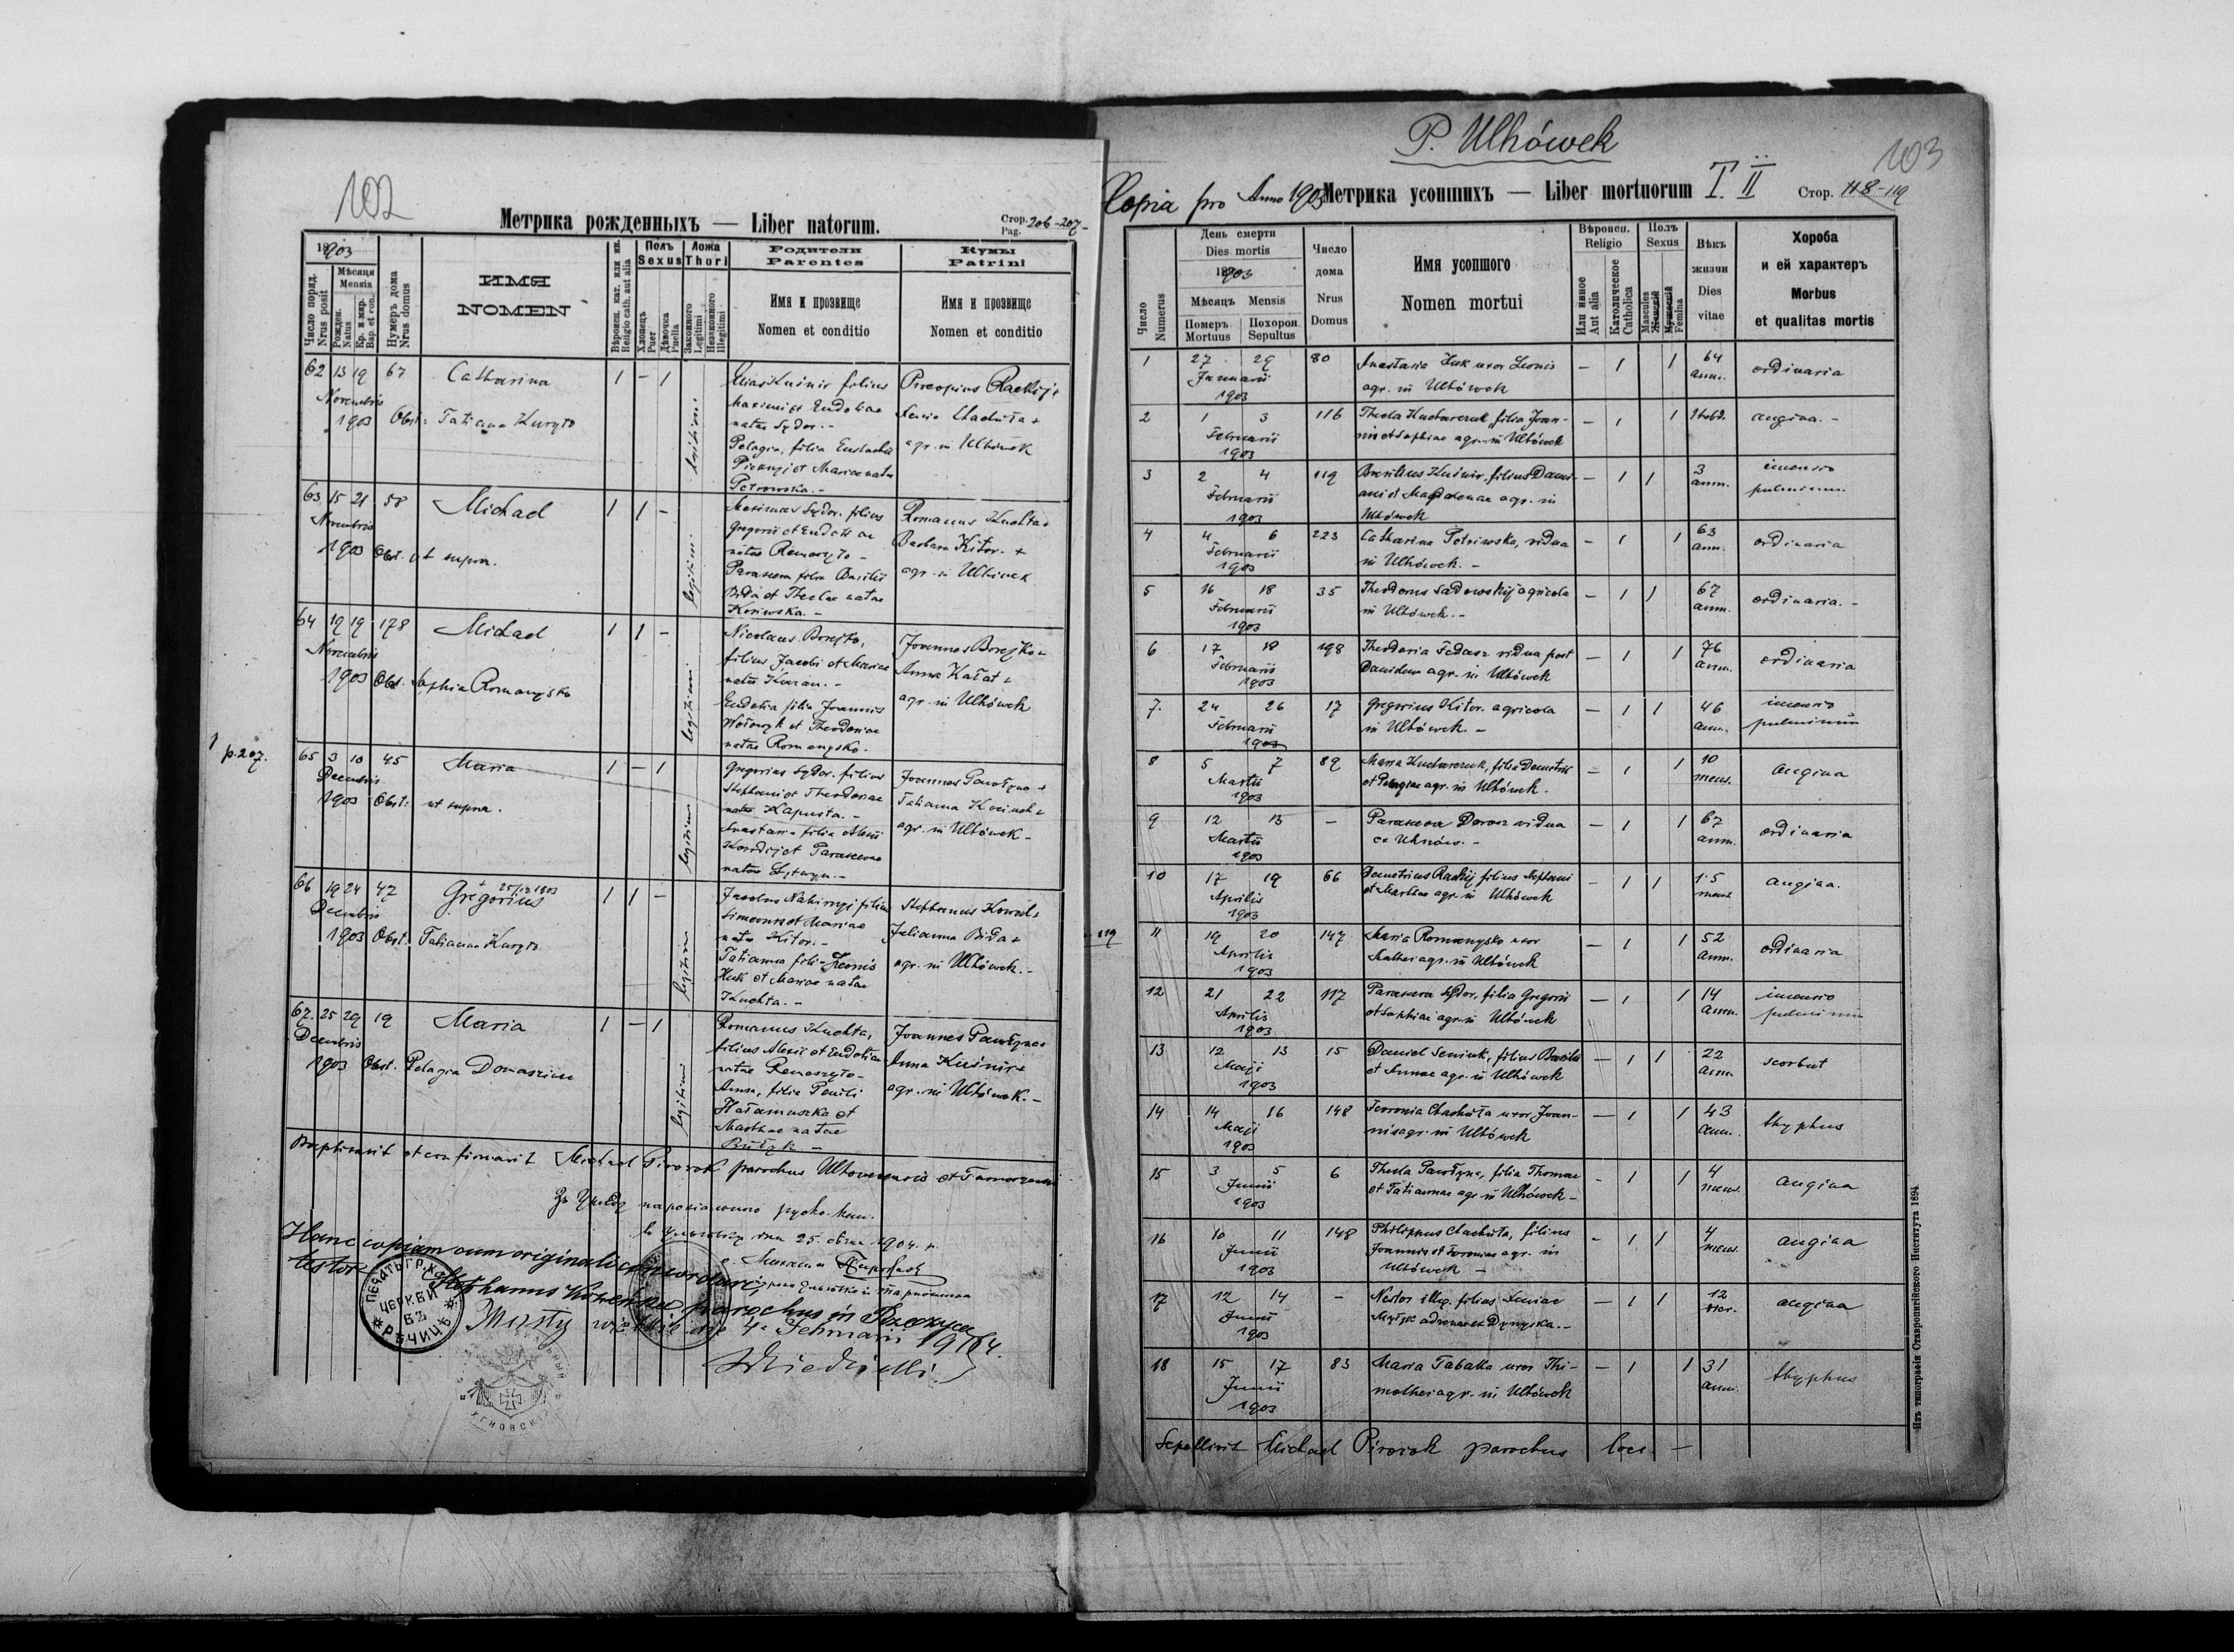 102
Метрика рожденныхъ — Liber natorum.
Стор. 206-207-
Pag.
1903
Число поряд.
Nrus posit
Мѣсяця
Mensis
Рожден.
Natus
Кр. и мир.
Bap. et con.
Нумеръ дома
Nrus domus
ИМЯ
NOMEN
Вѣроисп. кат. или ин.
Religio cath. aut alia
Полъ
Sexus
Хлопецъ
Puer
Дѣвочка
Puella
Ложа
Thori
Законного
Legitimi
Незаконного
Illegitimi
Родители
Parentes
Имя и прозвище
Nomen et conditio
Кумы
Patrini
Имя и прозвище
Nomen et conditio
62 13 19 67 Catharina 1 - 1
Novembris
1903 Obst: Tatiana Kuryto
legitimi
Elias Kuśnir filius
Maximi et Eudoxiae
natae Sydor.-
Pelagia, filia Eustachii
et Mariae natae
Petrowska.-
Procopius Rackij +
Xenia Chachuła +
agr. in Ulhówek
63 15 21 58 Michael 1 1 -
Novembris
1903 Obst. ut supra.
legitimi
Maximus Sydor. filius
Gregorii et Eudoxiae
natae
Parasceva filia Basilii
Bida et Theclae natae
Romanus Kuchta +
Barbara Kitor. +
agr. in Ulhówek
64 19 19 178 Michael 1 1 -
Novembris
1903 Obst. Sophia Romanysko
legitimi
Nicolaus Borejko,
filius Jacobi et Mariae
natae
Eudoxia filia Joannis
et Theodoriae
natae Romanysko.
Joannes Borejko +
Anna Kałat +
agr. in Ulhówek
1 p. 207.
65 3 10 45 Maria 1 - 1
Decembris
1903 Obst: ut supra.
legitimi
Gregorius Sydor. filius
Stephani et Theodoriae
natae Kapusta.-
Anastasia filia Alexii
et Parascevae
natae
Joannes Pawłyna +
Tatianna
agr. in Ulhówek -
66 19 24 47 Gregorius 1 1 -
+ 25/12 1903
Decembris
1903 Obst. Tatianna Kuryto
legitimi
Jacobus Nahirnyj filius
Simeonis et Mariae
nata Kitor.-
Tatianna filia Leonis
Huk et Mariae natae
Kuchta.-
Stephanus Kowal +
Julianna Bida +
agr. in Ulhówek.-
67. 25 29 19 Maria 1 - 1
Decembris
1903 Obst. Pelagia
legitimi
Romanus Kuchta,
filius Alexii et Eudoxiae
natae
Anna, filia Pauli
Hałamuszka et
Marthae natae
Joannes Pawłyna +
Anna Kuśnir +
agr. in Ulhówek.-
Baptizavit et confirmavit Michael Pirożok parochus
25. 1904.
Hanc copiam cum originali concordare
testor
Stephanus parochus in
ПЕЧАТЬ ГР. КАТ.
ЦЕРКВИ
ВЪ
РѢЧИЦѢ
4a Februarii 1904.
P. Ulhówek
103
Copia pro Anno 1903
Метрика усопшихъ — Liber mortuorum T. II
Стор. 118-119
Число
Numerus
День смерти
Dies mortis
1903
Мѣсяцъ Mensis
Померъ
Mortuus
Похорон.
Sepultus
Число
дома
Nrus
Domus
Имя усопшого
Nomen mortui
Вѣроисп.
Religio
Или инное
Aut alia
Католическое
Catholica
Полъ
Sexus
Masculus
Женскій
Мужскій
Femina
Вѣкъ
жизни
Dies
vitae
Хороба
и ей характеръ
Morbus
et qualitas mortis
1 27 29 80 Anastasia Huk uxor Leonis — 1 1 64 ordinaria
Januarii agr. in Ulhówek ann.
1903
2 1 3 116 Thecla Kucharczuk, filia Joan- — 1 1 angina.-
Februarii nis et Sophiae agr. in Ulhówek
1903
3 2 4 119 Basilius Kuśnir, filius Dami- — 1 1 3
Februarii ani et Magdalenae agr. in ann. pulmonum
1903 Ulhówek
4 4 6 223 Catharina Petriwska, vidua — 1 1 63 ordinaria
Februarii in Ulhówek.- ann.
1903
5 16 18 35 Theodorus Sadowskij agricola — 1 1 67 ordinaria.-
Februarii in Ulhówek.- ann.
1903
6 17 18 198 Theodoria Fedasz vidua post — 1 1 76 ordinaria
Februarii Danielem agr. in Ulhówek ann.
1903
7. 24 26 17 Gregorius Kitor. agricola — 1 1 46
Februarii in Ulhówek.- ann. pulmonum
1903
8 5 7 89 Maria Kucharczuk, filia Demetrii — 1 1 10 angina
Martii et Pelagiae agr. in Ulhówek. mens.
1903
9 12 13 — Parasceva Dorosz vidua — 1 1 67 ordinaria
Martii ex Uhnów.- ann.
1903
10 17 19 66 Demetrius Rackij filius Stephani — 1 1 1·5 angina.
Aprilis et Marthae agr. in Ulhówek mens.
1903
119
11 19 20 147 Maria Romanysko uxor — 1 1 52 ordinaria
Aprilis Mathei agr. in Ulhówek ann.
1903
12 21 22 117 Parasceva Sydor, filia Gregorii — 1 1 14
Aprilis et Sophiae agr. in Ulhówek ann.
1903
13 12 13 15 Daniel Seniuk, filius Basilii — 1 1 22 scorbut
Maji et Annae agr. in Ulhówek ann.
1903
14 14 16 148 Fevronia Chachuła uxor Joan- — 1 1 43 thyphus
Maji nis agr. in Ulhówek ann.
1903
15 3 5 6 Thecla Pawłyna, filia Thomae - 1 1 4 angina
Junii et Tatiannae agr. in Ulhówek - mens.
1903
16 10 11 148 Philippus Chachuła, filius - 1 1 4 angina
Junii Joannis et Fevroniae agr. in mens.
1903 Ulhówek -
17 12 14 — Nestor illeg. filius Xeniae — 1 1 12 angina
Junii
1903
18 15 17 83 Maria Tabaka uxor Thi- — 1 1 31 thyphus
Junii mothei agr. in Ulhówek ann.
1903
Sepellivit Michael Pirożok parochus loci.-
Изъ типографіи Ставропигійского Института 1894